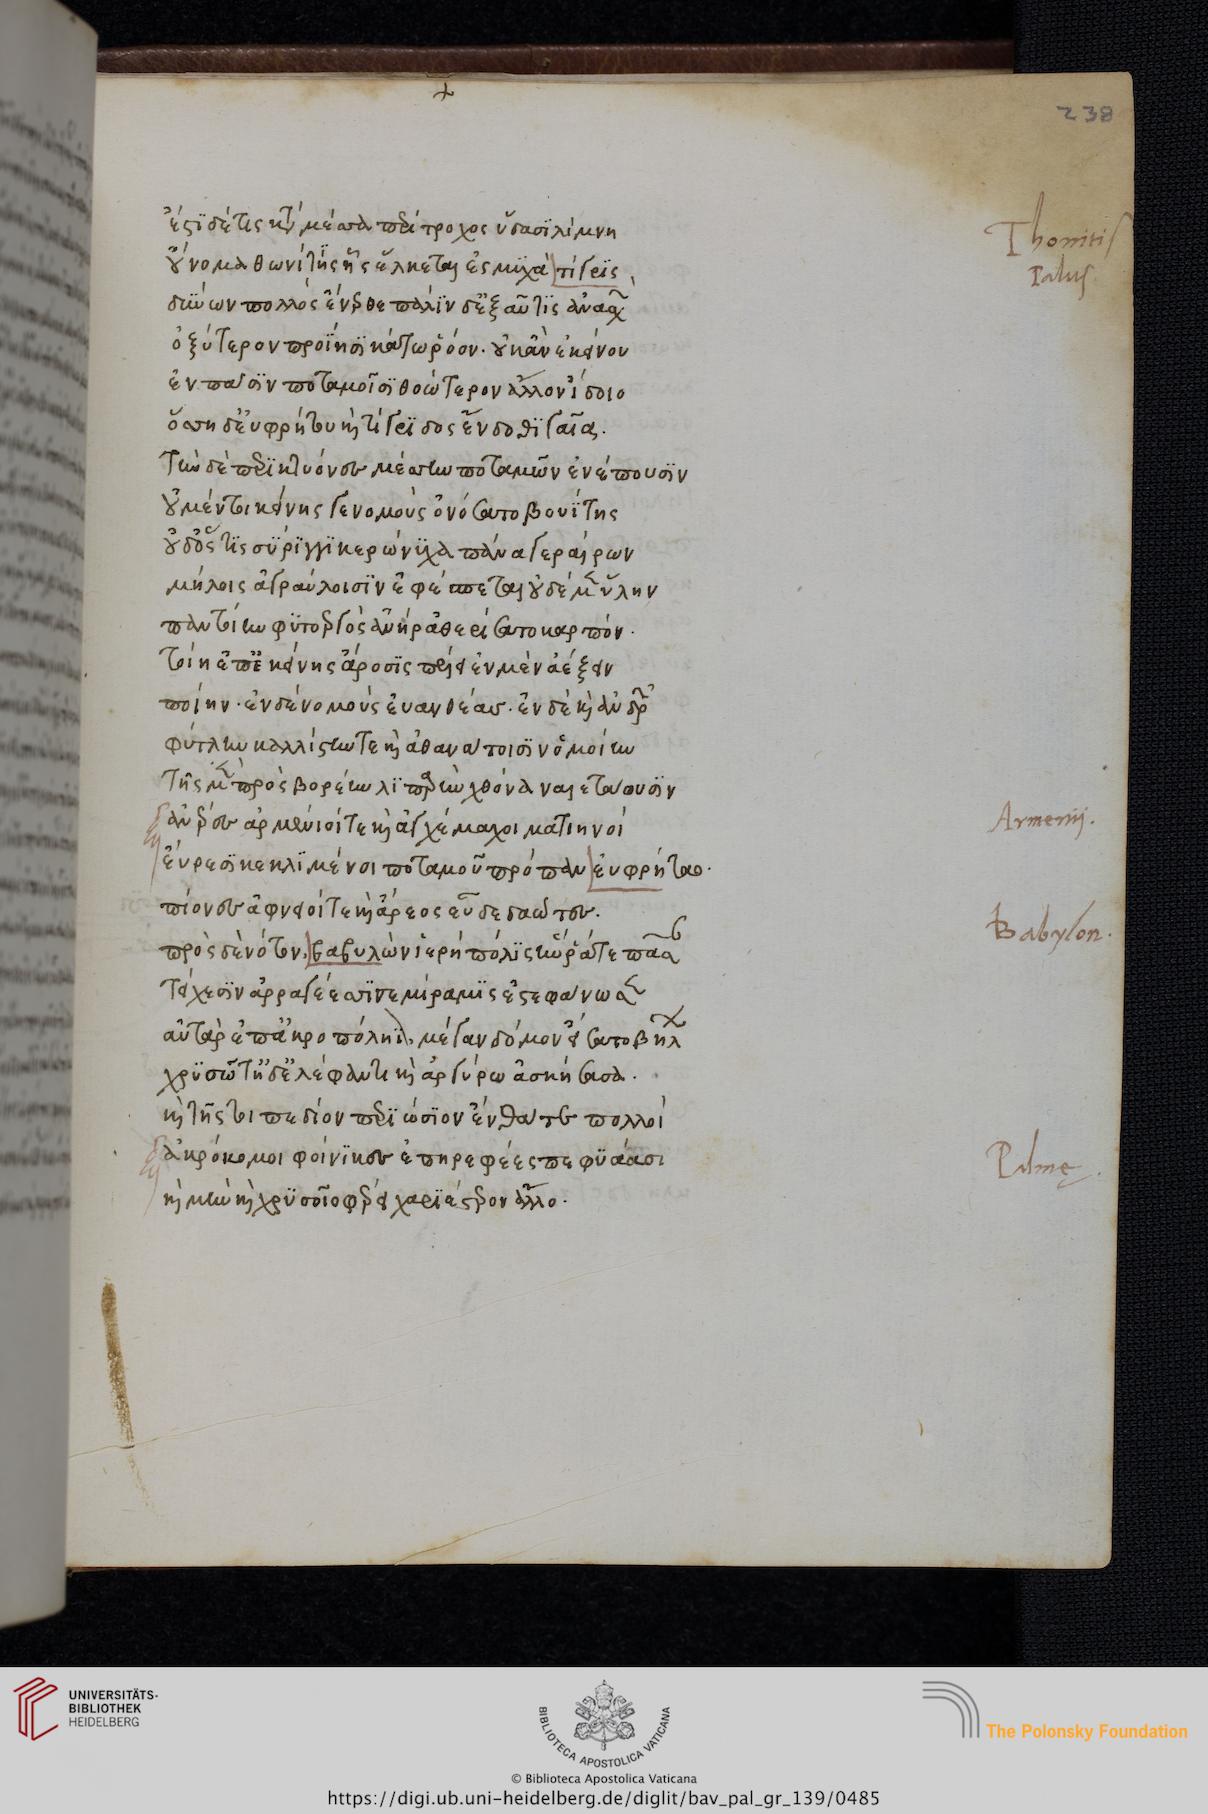 238
ἔστι δέ τις κατὰ μέσσα περίτροχος ὕδασι λίμνη
οὔνομα θωνίτης ἧς ἕλκεται ἐς μυχὰ τίγρις
δινύων πολλὸς ἔνερθε πάλιν δ' ἐξαῦτις
ὀξύτερον προΐησι κάτω ῥόον. οὐκ ἂν ἐκείνου
ἐν πᾶσιν ποταμοῖσι θοώτερον ἄλλον ἴδοιο
ὅσση δ' εὐφρήτου καὶ τίγριδος ἔνδοθι γαῖα.
τὴν δὲ περικτίονες μέσσην ποταμῶν ἐνέπουσιν
οὐ μέν τοι κείνης γε νομοὺς ὀνόσατο βουΐτης
οὐδ' ὅστις σύριγγι κερώνυχα πᾶνα γεραίρων
μήλοις ἀγραύλοισιν ἐφέπεται οὐδὲ μὲν ὕλην
παντοίην φυτοεργὸς ἀνὴρ ἀθερίσσατο καρπόν.
τοίη ἐπὶ κείνης ἄροσις πέλει ἐν μὲν ἀέξειν
ποίην. ἐν δὲ νομοὺς εὐανθέας. ἐν δὲ καὶ ἀνδρῶν
φύτλην καλλίστην τε καὶ ἀθανάτοισιν ὁμοίην
τῆς μὲν πρὸς βορέην λιπαρὴν χθόνα ναιετάουσιν
ἀνέρες ἀρμένιοί τε καὶ ἀγχέμαχοι ματιηνοί
ἐν ὄρεσι κεκλιμένοι ποταμοῦ πρόπαν εὐφρήταο.
πίονες ἀφνειοί τε καὶ ἄρεος εὖ δεδαῶτες.
πρὸς δὲ νότον, βαβυλὼν ἱερὴ πόλις ἥν ῥά τε πᾶσαν
τείχεσιν ἀρραγέεσσι σεμίραμις ἐστεφάνωσεν
αὐτὰρ ἐπ' ἀκροπόληϊ, μέγαν δόμον εἵσατο βήλῳ
χρυσῷ τ' ἠδ' ἐλέφαντι καὶ ἀργύρῳ ἀσκήσασα.
καὶ τῆς τοι πεδίον περιώσιον ἔνθα τε πολλοὶ
ἀκρόκομοι φοίνικες ἐπηρεφέες πεφύασι
καὶ μὴν καὶ χρυσοῖο φέρει χαριέστερον ἄλλο.
Thonitis
Palus
Armenij.
Babylon.
Palmę.
UNIVERSITÄTS-
BIBLIOTHEK
HEIDELBERG
BIBLIOTECA APOSTOLICA VATICANA
The Polonsky Foundation
© Biblioteca Apostolica Vaticana
https://digi.ub.uni-heidelberg.de/diglit/bav_pal_gr_139/0485